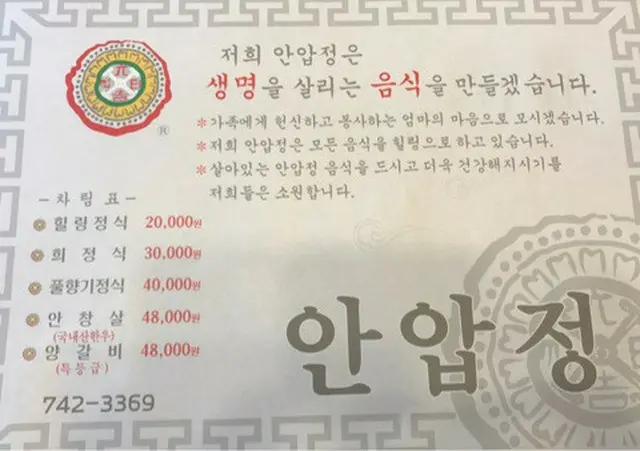 저희 안압정은
생명을 살리는 음식을 만들겠습니다.
*가족에게 헌신하고 봉사하는 엄마의 마음으로 모시겠습니다.
*저희 안압정은 모든 음식을 힐링으로 하고 있습니다.
*살아있는 안압정 음식을 드시고 더욱 건강해지시기를
저희들은 소원합니다.
®
- 차 림 표 -
힐링정식 20,000원
희 정 식 30,000원
풀향기정식 40,000원
안 창 살 48,000원
(국내산한우)
양 갈 비 48,000원
(특등급)
742-3369
안압정